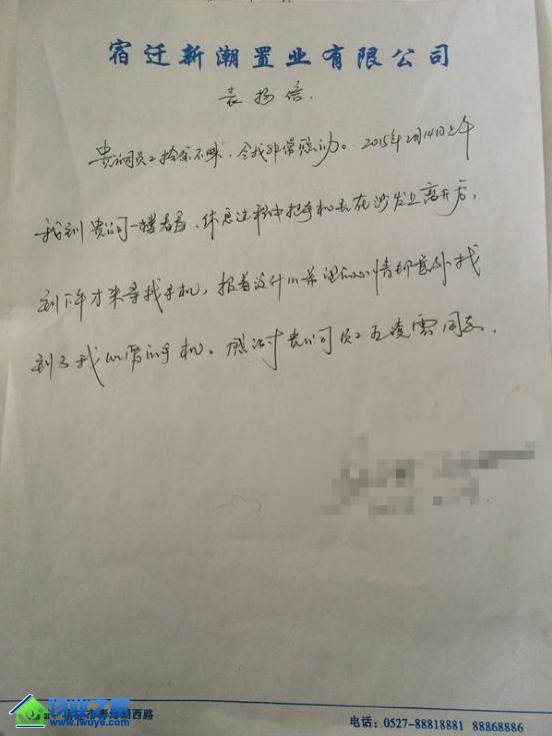 宿迁新潮置业有限公司
表扬信.
贵公司员工拾金不昧,令我非常感动。2015年2月14日上午
我到贵公司一楼看房,休息过程中把手机丢在沙发上离开后,
到下午才来寻找手机,报着没什么希望的心情却意外找
到了我心爱的手机。感谢贵公司员工王凌云同志.
物业之家
www.iwuye.com
西路
电话:0527-88818881 88868886